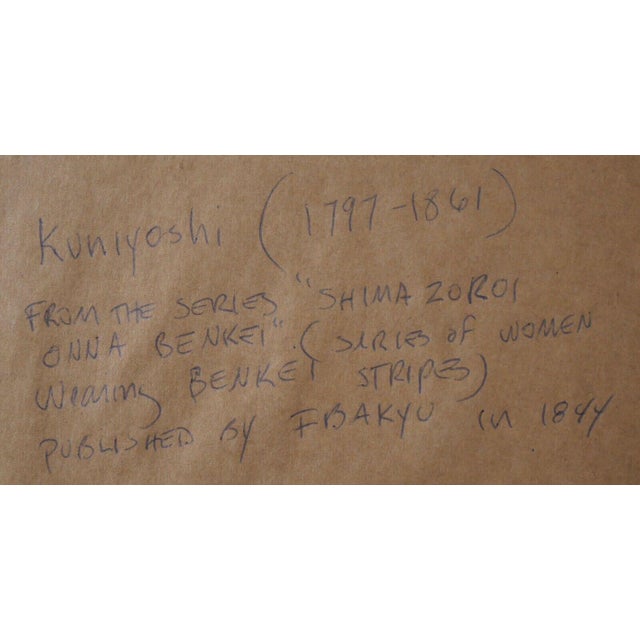 Kuniyoshi (1797-1861)
FROM THE SERIES "SHIMA ZOROI
ONNA BENKEI". (SERIES OF WOMEN
Wearing BENKEI STRIPES)
PUBLISHED BY IBAKYU in 1844